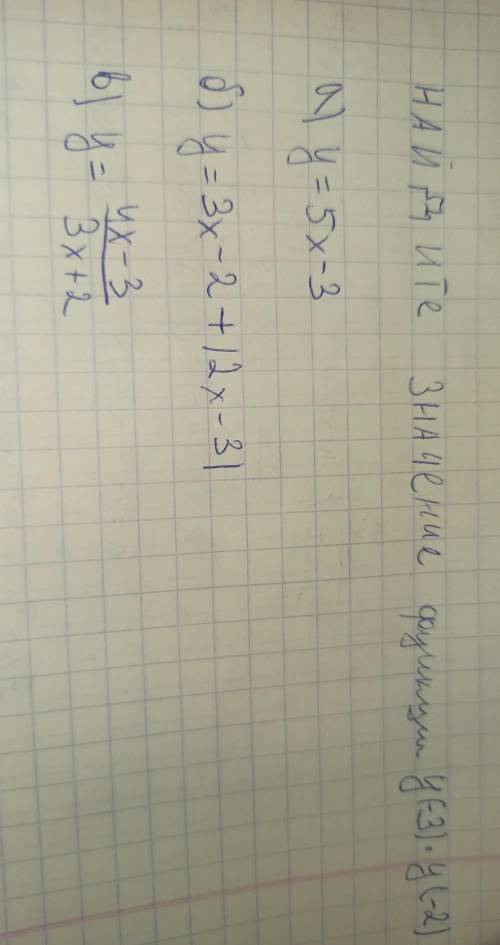 НАЙДИТЕ ЗНАЧЕНИЕ функции y(-3) · y(-2)
а) y = 5x - 3
б) y = 3x - 2 + |2x - 3|
в) y = \frac{4x - 3}{3x + 2}